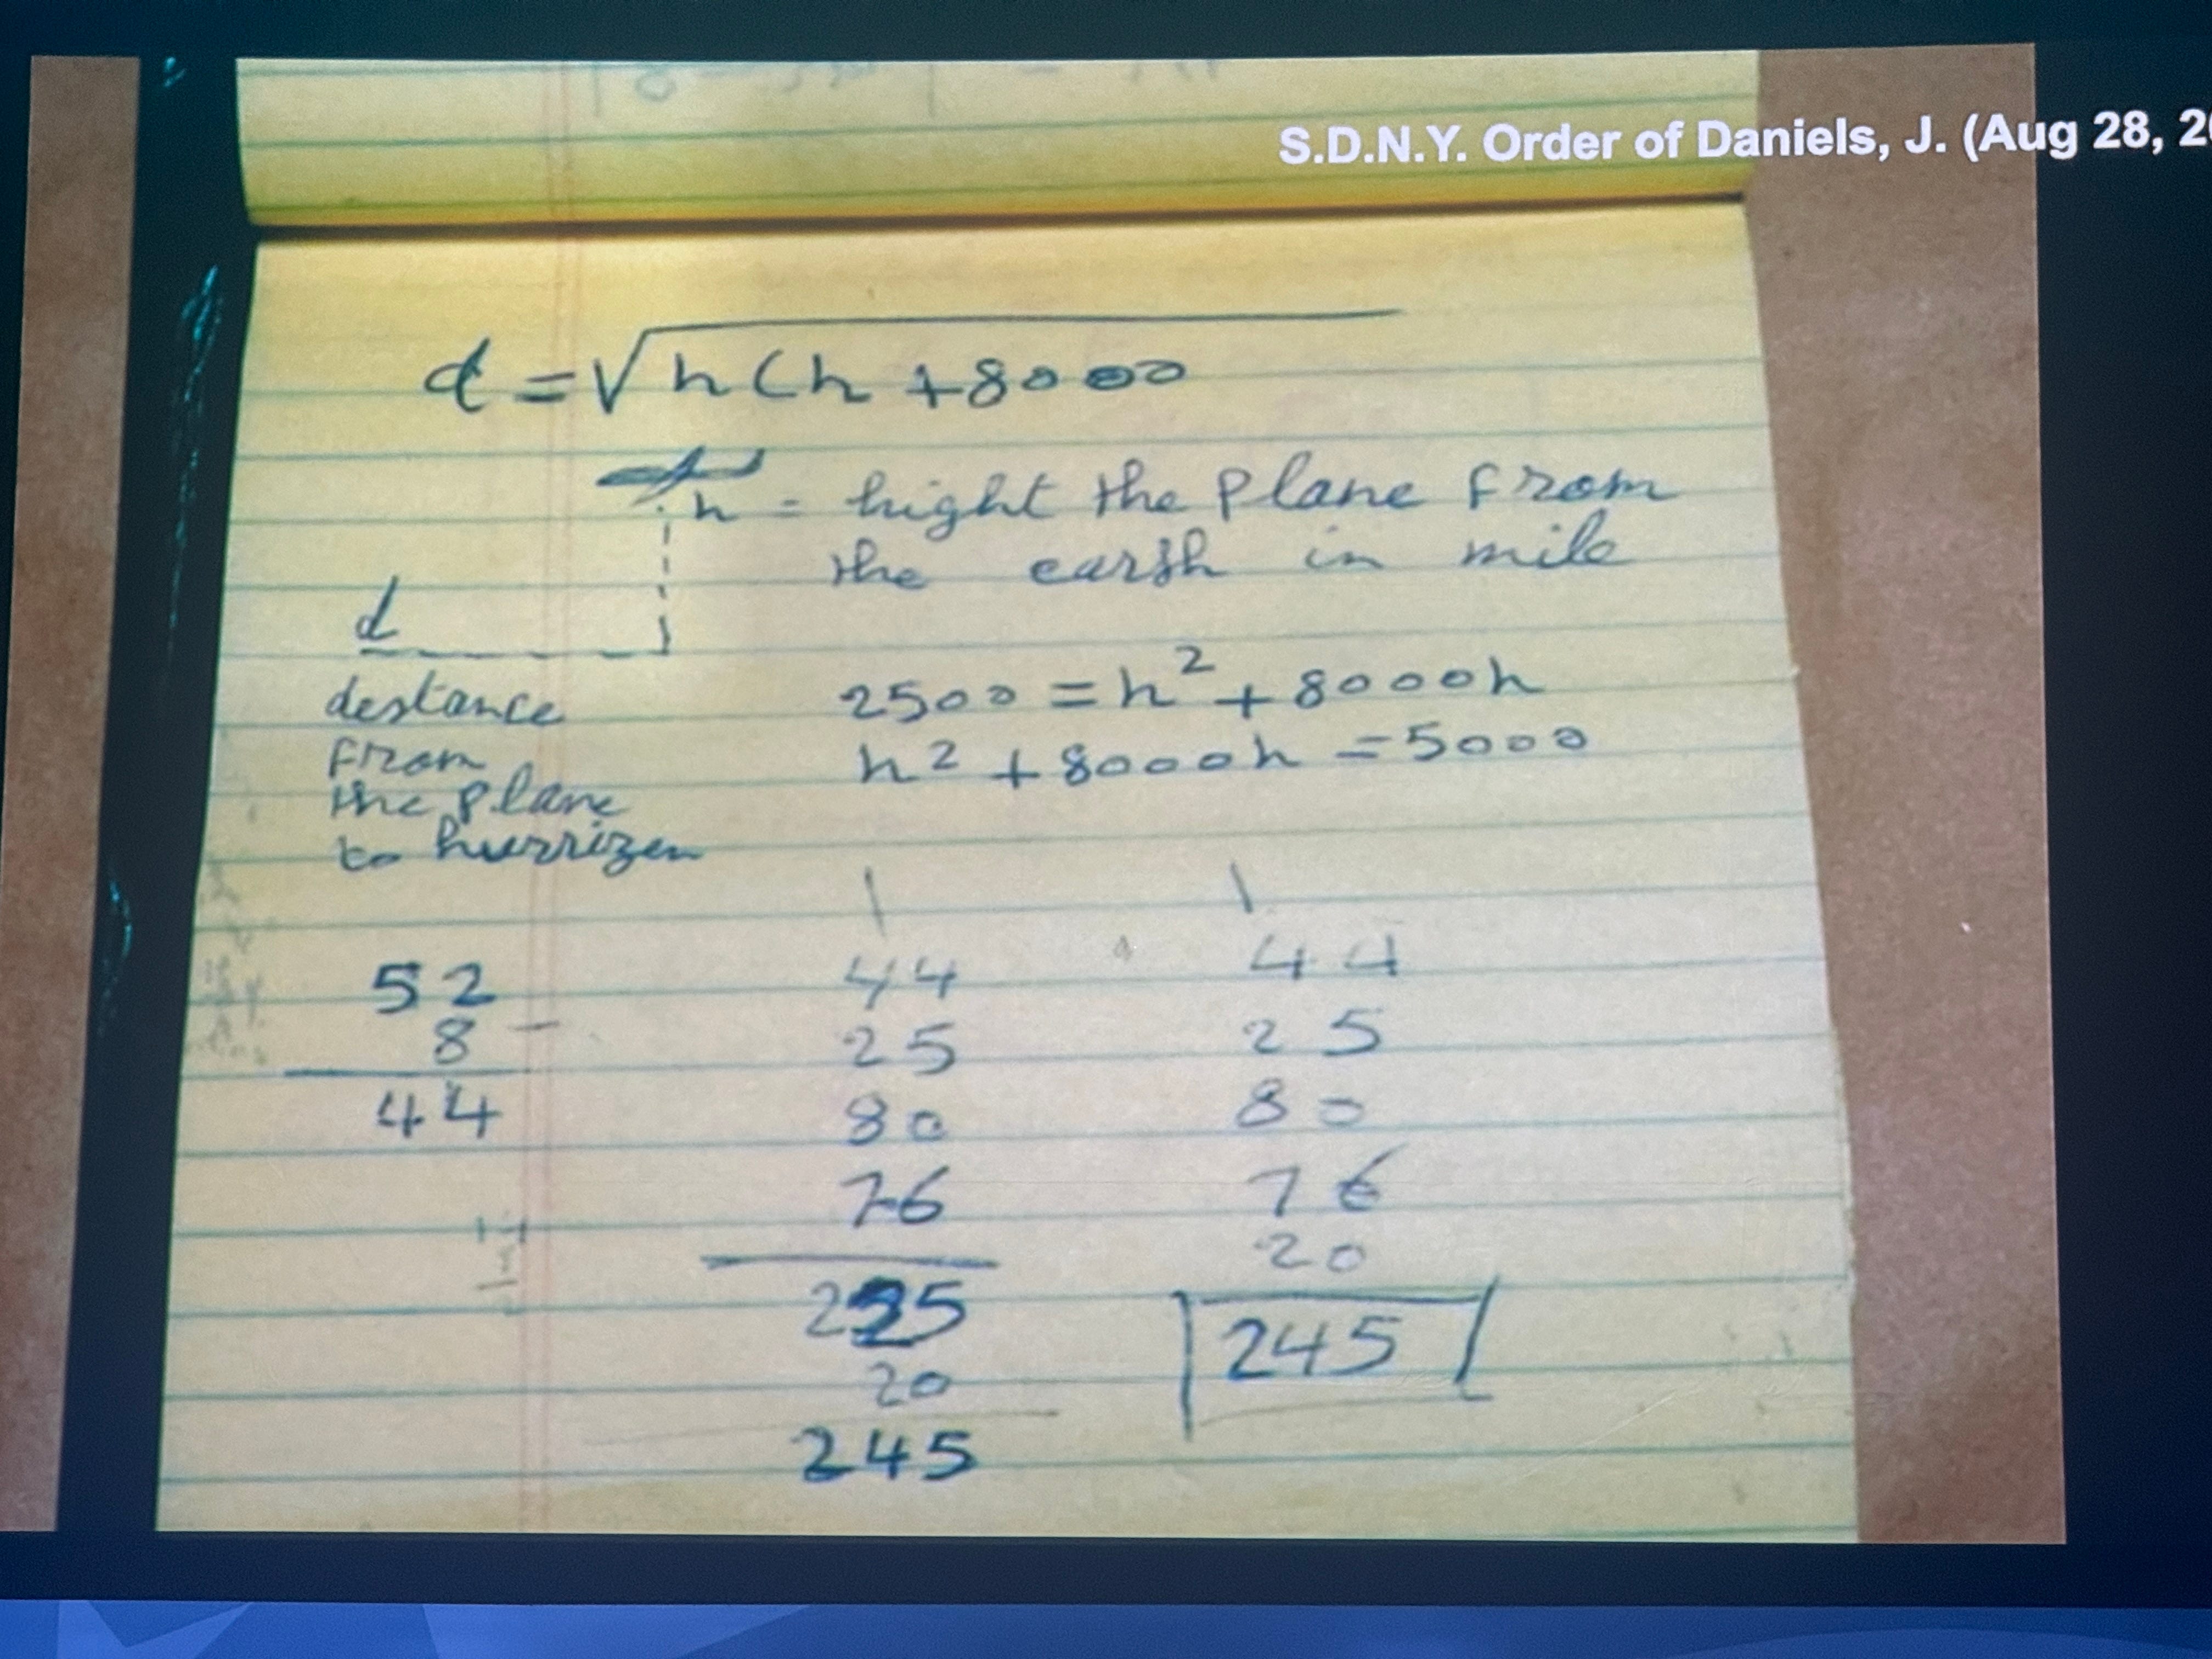 S.D.N.Y. Order of Daniels, J. (Aug 28, 2
d = √h(h + 8000
h = hight the plane from
the earth in mile
d
destance
from
the plane
to hurrizen
2500 = h² + 8000h
h² + 8000h = 5000
52
8 –
44
44
25
80
76
225
20
245
44
25
80
76
20
245